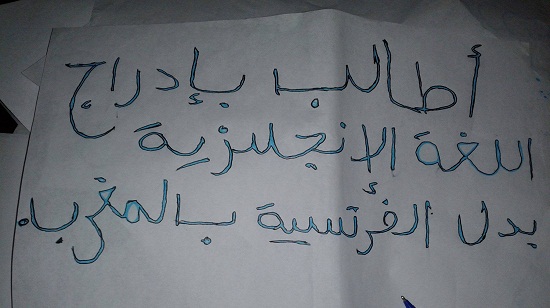 أطالب بإدراج
اللغة الإنجلزية
بدل الفرنسية بالمغرب.